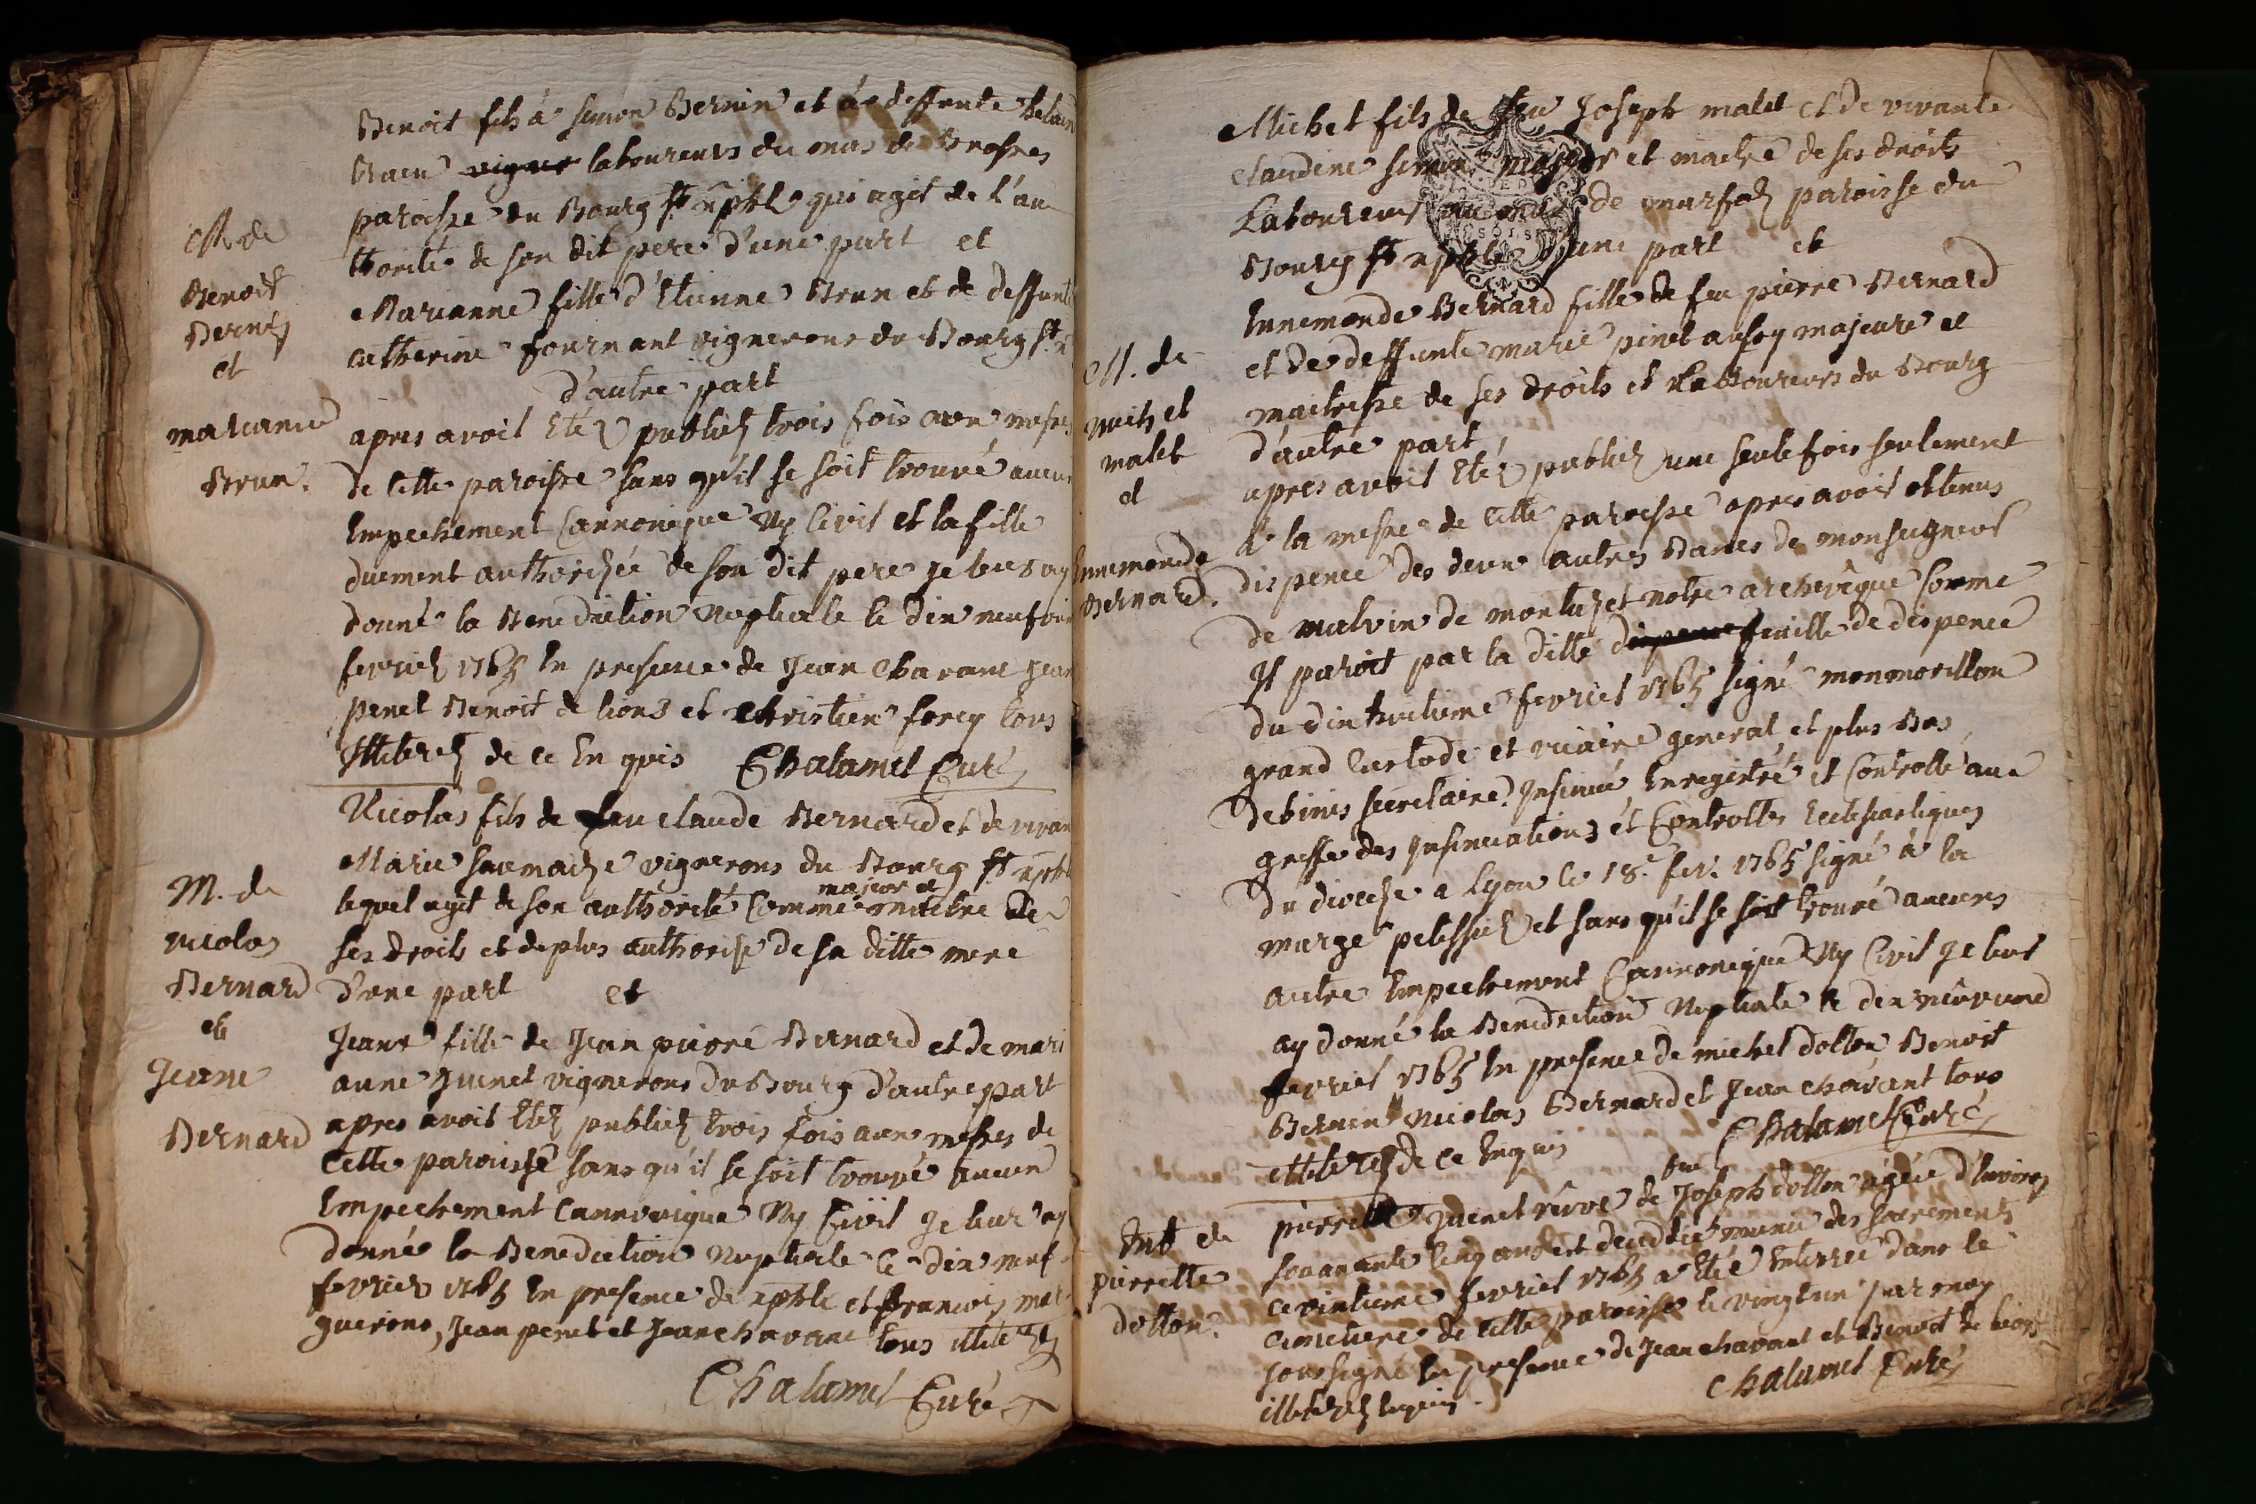 M. de
Benoit
Bernin
et
marianne
Brun.
Benoit fils à simon Bernin et à deffunte
Brun vigner laboureurs du mas de Brosses
paroisse du Bourg St xptle qui agit de l'au
thorité de son dit pere d'une part et
Marianne fille d'Etienne Brun et de deffunte
catherine fournant vignerons du Bourg St x
d'autre part
apres avoit Etéz publiez trois fois aux messes
de cette paroisse sans qu'il se soit trouvé aucun
Empechement Cannonique Ny Civil et la fille
duement authorizée de son dit pere je leurs ay
donné la Benediction Nuptiale le dix neufvie
fevriez 1765 En presence de Jean Chavant Jean
penet Benoit de lions et Christien forey tous
Illiterez de ce En quis Chalamel Curé
M. de
nicolas
Bernard
et
Jeane
Bernard
Nicolas fils de feu claude Bernard et de vivan
Marie saumaize vignerons du Bourg St xptle
lequel agit de son authorité Comme majeur et maitre de
ses droits et de plus authorisé de sa ditte mere
d'une part et
Jeane fille de Jean pierre Bernard et de mari
anne Guenet vignerons du Bourg d'autre part
apres avoit Etéz publiez trois fois aux messes de
Cette paroisse sans qu'il se soit trouvé aucun
Empechement Cannonique Ny Civil je leur ay
donné la Benediction Nuptiale le dix neuf
fevrier 1765 En presence de xptle et francois mar
guerons, Jean penet et Jean chavant tous illiterez
Chalamel Curé
M. de
michel
malet
et
Ennemonde
Bernard.
Michel fils de feu Joseph malet et de vivante
claudine simon majeur et maitre de ses droits
Laboureurs du mas de marfoz paroisse du
Bourg St xptle d'une part et
Ennemonde Bernard fille de feu pierre Bernard
et de deffunte marie pinet aussy majeure et
maitresse de ses droits et laboureurs du Bourg
d'autre part
apres avoit Etéz publiez une seule fois seulement
à la messe de cette paroisse apres avoit obtenus
dispence des deux autres Banes de monseigneur
de malvin de montazet notre archevêque Comme
Il paroit par la ditte dispence feuille de dispence
du dix huitieme fevriet 1765 signé monmorillon
grand Custode et vicaire general et plus Bas
debinis secretaire. Insinué Enregistré et Controllé aux
greffe des Insinuations et Controlles Ecclesiastiques
du dioceze a Lyon le 18e fev. 1765 signé à la
marge pelissier et sans qu'il se soit trouvé aucuns
autre Empechement Cannonique Ny Civil je leur
ay donné la Benediction Nuptiale le dix neuvieme
fevriet 1765 En presence de michel dolton Benoit
Bernin Nicolas Bernard et Jean chavant tous
illiterez de ce Enquis Chalamel Curé
Ent de
pierrette
dolton.
pierrette Guenet veuve de feu Joseph dolton agée d'Environ
soixante cinq ans est decedée munie des sacrements
ce vintieme fevriet 1765 a Eté Enterrée dans le
cimetiere de cette paroisse le vingt un par moy
soussigné En presence de Jean chavant et Benoit de lions
illiterez Enquis. Chalamel Curé